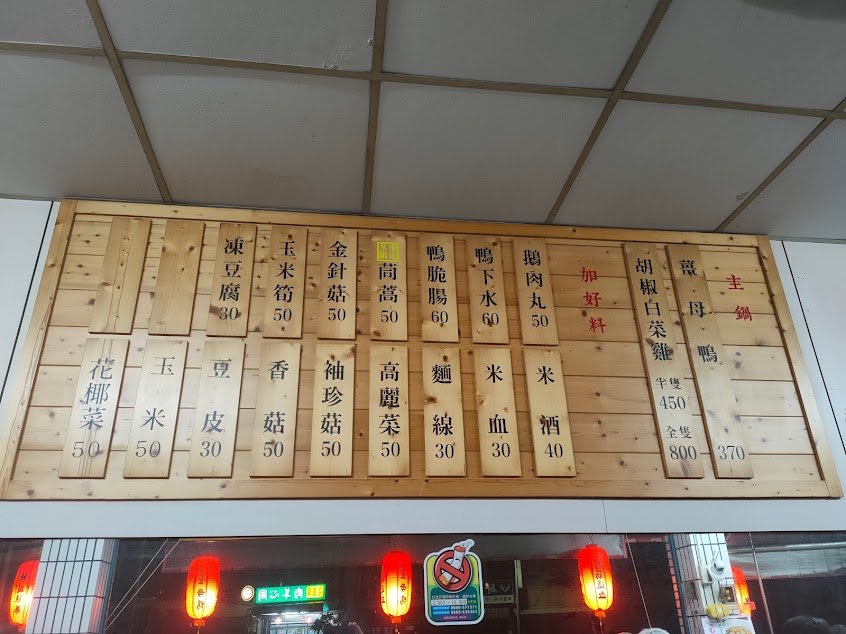 主鍋
薑母鴨 370
胡椒白菜雞 半隻 450 全隻 800
加好料
鵝肉丸 50
鴨下水 60
鴨脆腸 60
茼蒿 50
金針菇 50
玉米筍 50
凍豆腐 30
米酒 40
米血 30
麵線 30
高麗菜 50
袖珍菇 50
香菇 50
豆皮 30
玉米 50
花椰菜 50